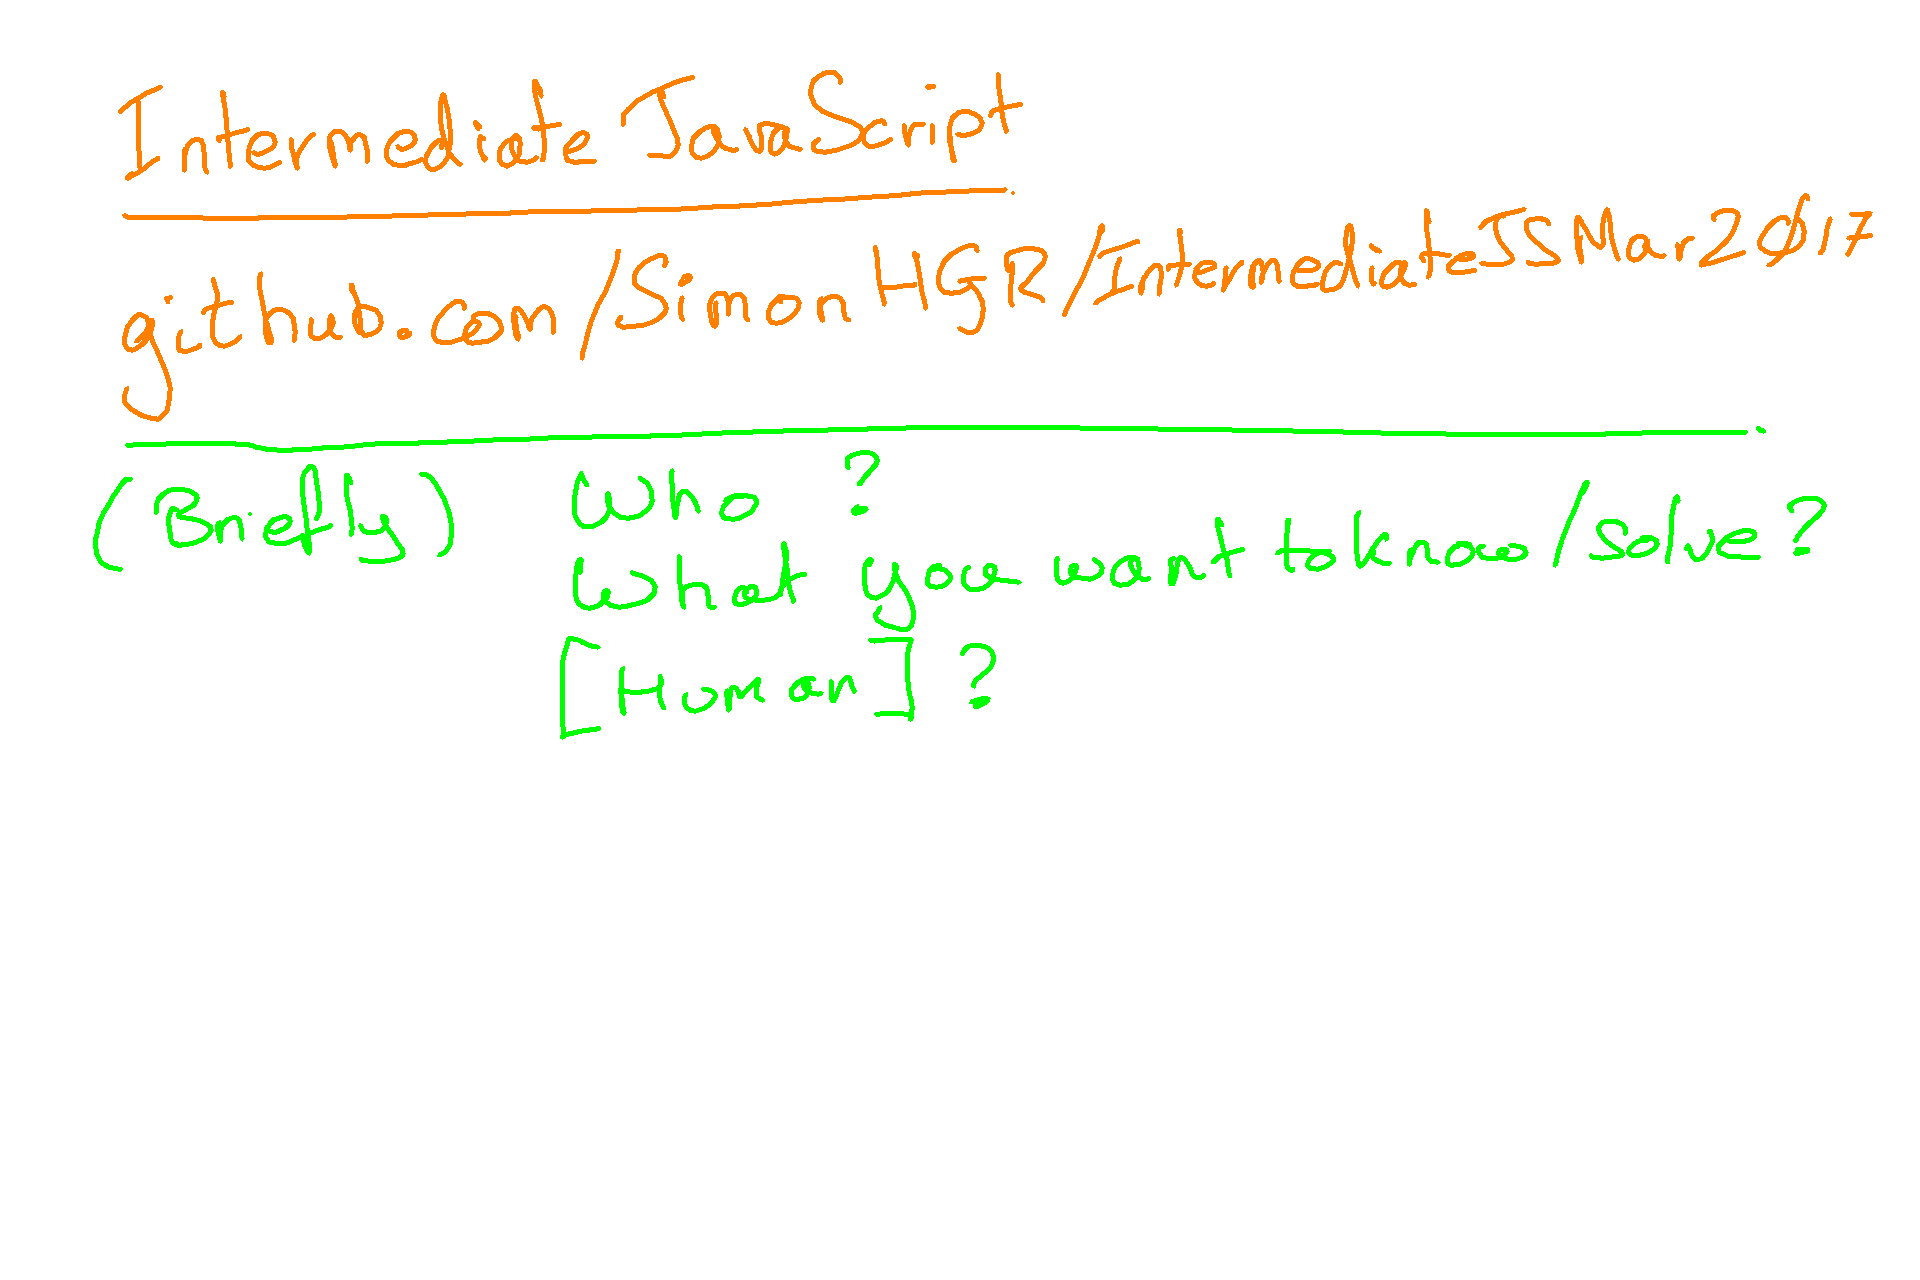 Intermediate JavaScript
github.com/SimonHGR/IntermediateJSMar2017
(Briefly) Who?
What you want to know/solve?
[Human]?